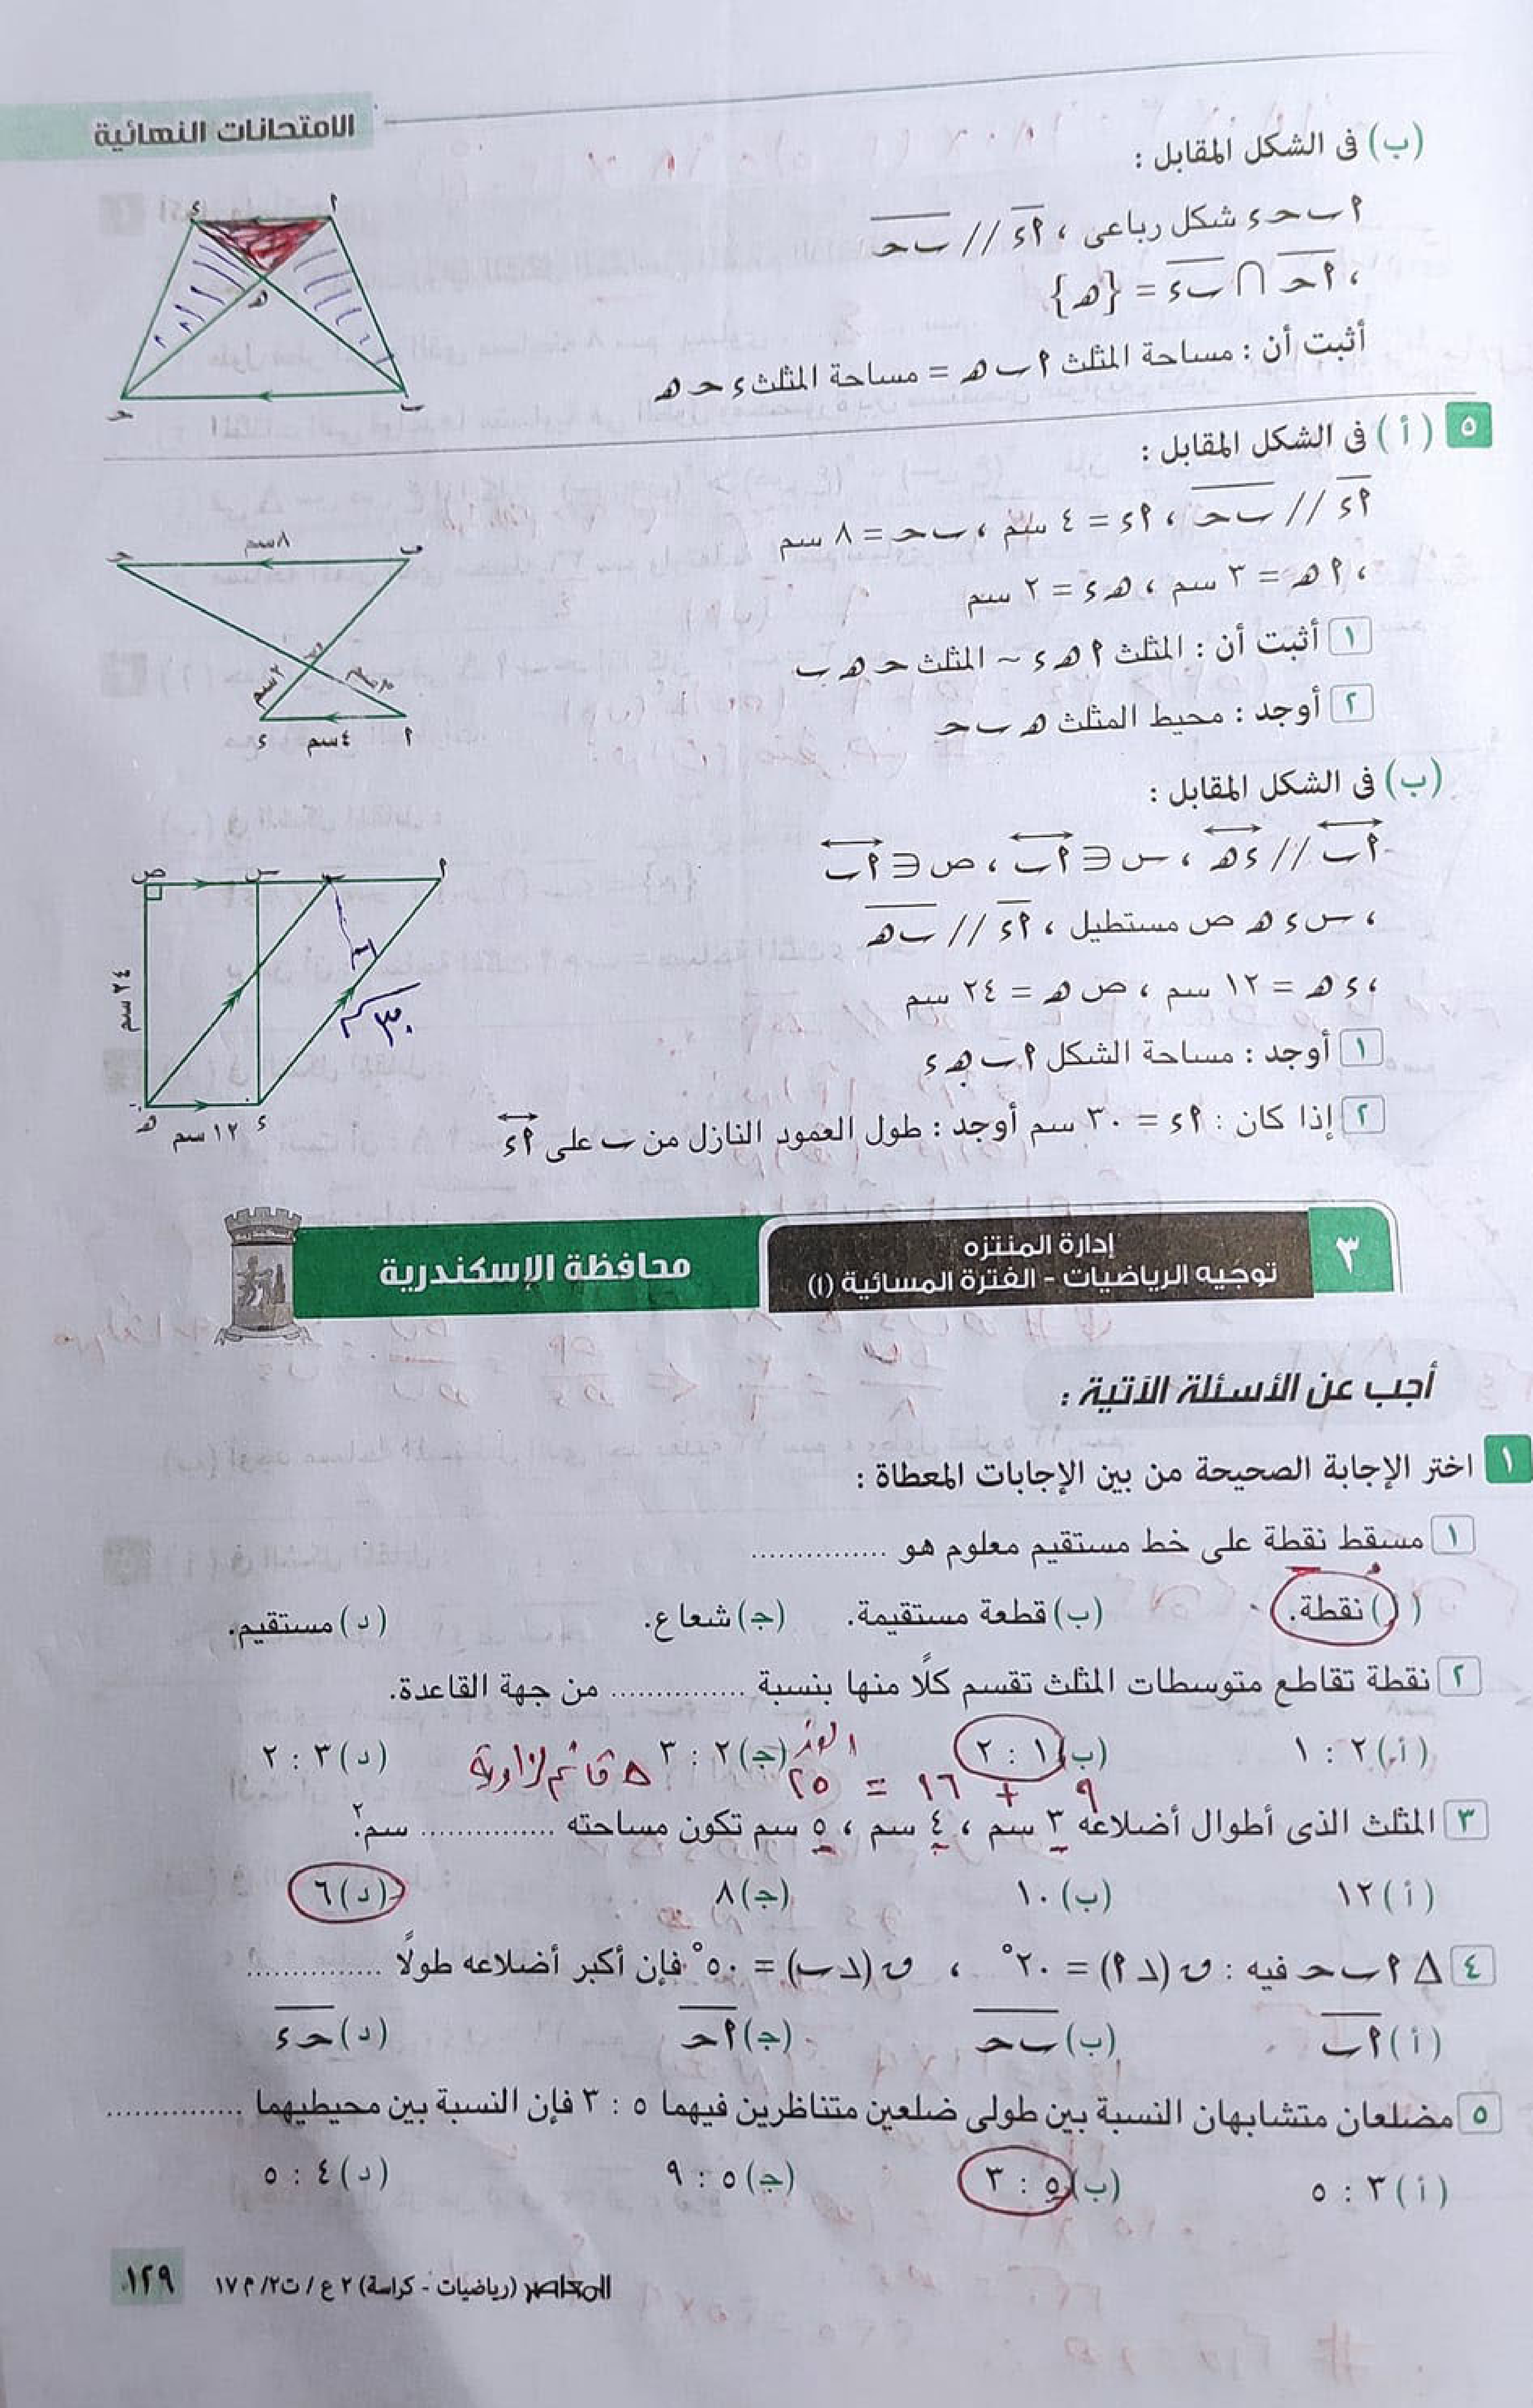 الامتحانات النهائية
(ب) فى الشكل المقابل :
ا ب ح د شكل رباعى ، ا د // ب ح
، ا ح ∩ ب د = {ه}
أثبت أن : مساحة المثلث ا ب ه = مساحة المثلث د ح ه
ا
د
ه
ب
ح
٥ (أ) فى الشكل المقابل :
ا د // ب ح ، ا د = ٤ سم ، ب ح = ٨ سم
، ا ه = ٣ سم ، ه د = ٢ سم
١ أثبت أن : المثلث ا ه د ~ المثلث ح ه ب
٢ أوجد : محيط المثلث ه ب ح
٨سم
ب
ح
ه
٣سم
٢سم
ا
٤سم
د
(ب) فى الشكل المقابل :
ا ب // د ه ، س ∈ ا ب ، ص ∈ ا ب
، س د ه ص مستطيل ، ا د // ب ه
، د ه = ١٢ سم ، ص ه = ٢٤ سم
١ أوجد : مساحة الشكل ا ب ه د
٢ إذا كان : ا د = ٣٠ سم أوجد : طول العمود النازل من ب على ا د
ا
ب
س
ص
٢٤ سم
٣٠
د
١٢ سم
ه
٣
إدارة المنتزه
توجيه الرياضيات - الفترة المسائية (١)
محافظة الإسكندرية
أجب عن الأسئلة الآتية :
١ اختر الإجابة الصحيحة من بين الإجابات المعطاة :
١ مسقط نقطة على خط مستقيم معلوم هو ...............
( ) نقطة. (ب) قطعة مستقيمة. (ج) شعاع. (د) مستقيم.
٢ نقطة تقاطع متوسطات المثلث تقسم كلًا منها بنسبة ............... من جهة القاعدة.
(أ) ٢ : ١ (ب) ١ : ٢ (ج) ٢ : ٣ (د) ٣ : ٢
٩ + ١٦ = ٢٥ ∆ قائم الزاوية
٣ المثلث الذى أطوال أضلاعه ٣ سم ، ٤ سم ، ٥ سم تكون مساحته ............... سم٢.
(أ) ١٢ (ب) ١٠ (ج) ٨ (د) ٦
٤ ∆ ا ب ح فيه : ق (∠ ا) = ٢٠° ، ق (∠ ب) = ٥٠° فإن أكبر أضلاعه طولًا ...............
(أ) ا ب (ب) ب ح (ج) ا ح (د) ح د
٥ مضلعان متشابهان النسبة بين طولى ضلعين متناظرين فيهما ٥ : ٣ فإن النسبة بين محيطيهما ...............
(أ) ٣ : ٥ (ب) ٥ : ٣ (ج) ٥ : ٩ (د) ٤ : ٥
المحاصر (رياضيات - كراسة) ٢ ع / ت٢/ م ١٧
١٢٩